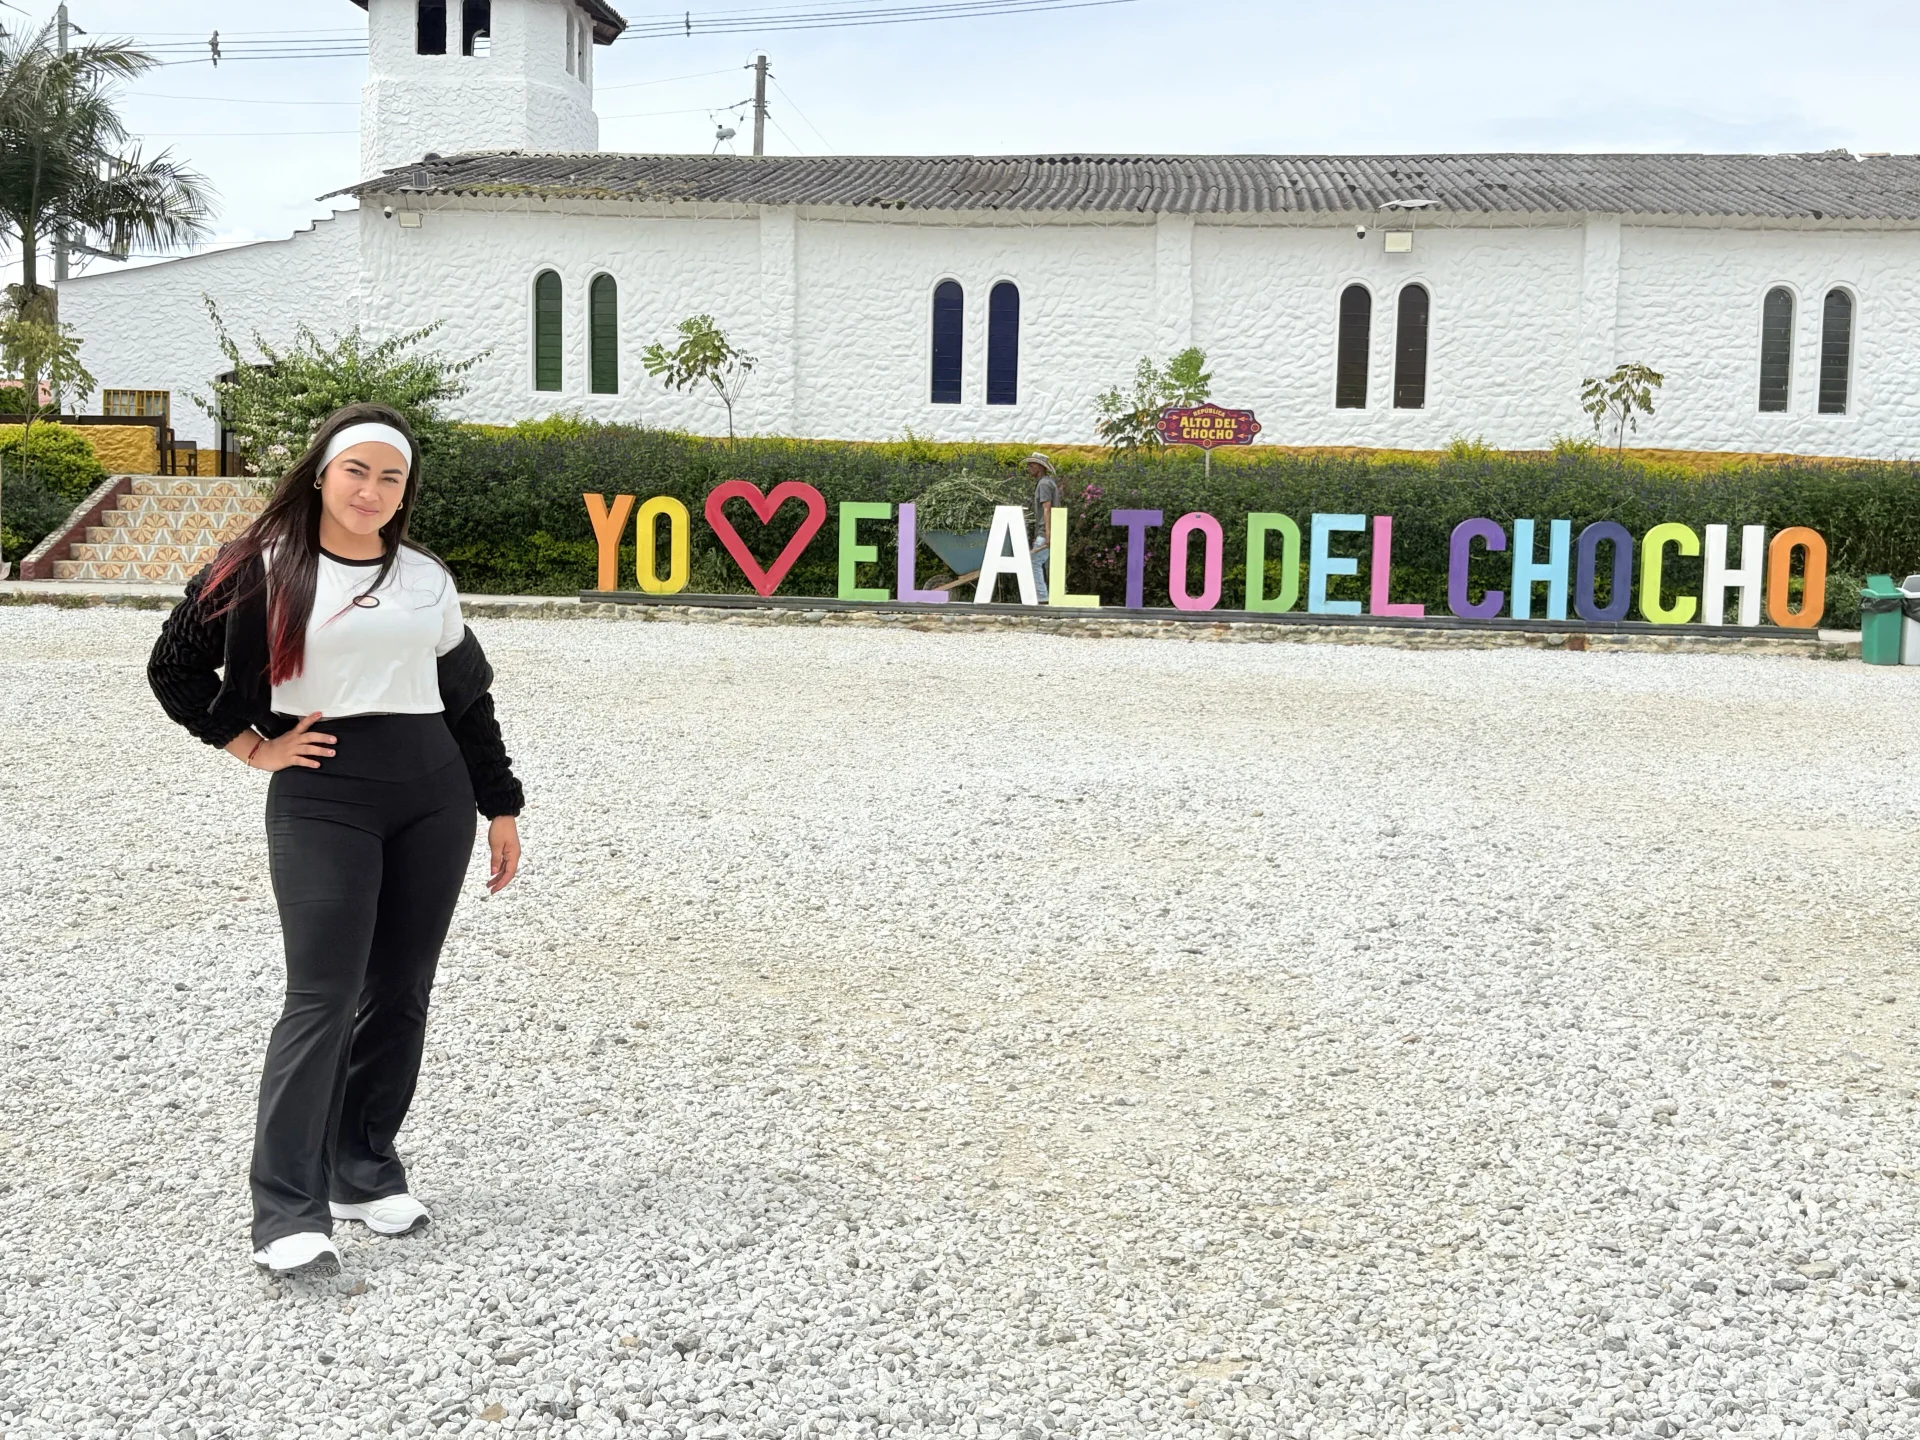 REPÚBLICA
ALTO DEL
CHOCHO
YO ♥ EL ALTO DEL CHOCHO